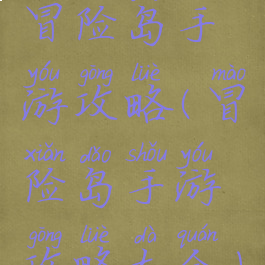 冒险岛手
yóu gōng lüè mào
游攻略(冒
xiǎn dǎo shǒu yóu
险岛手游
gōng lüè dà quán
攻略大全)